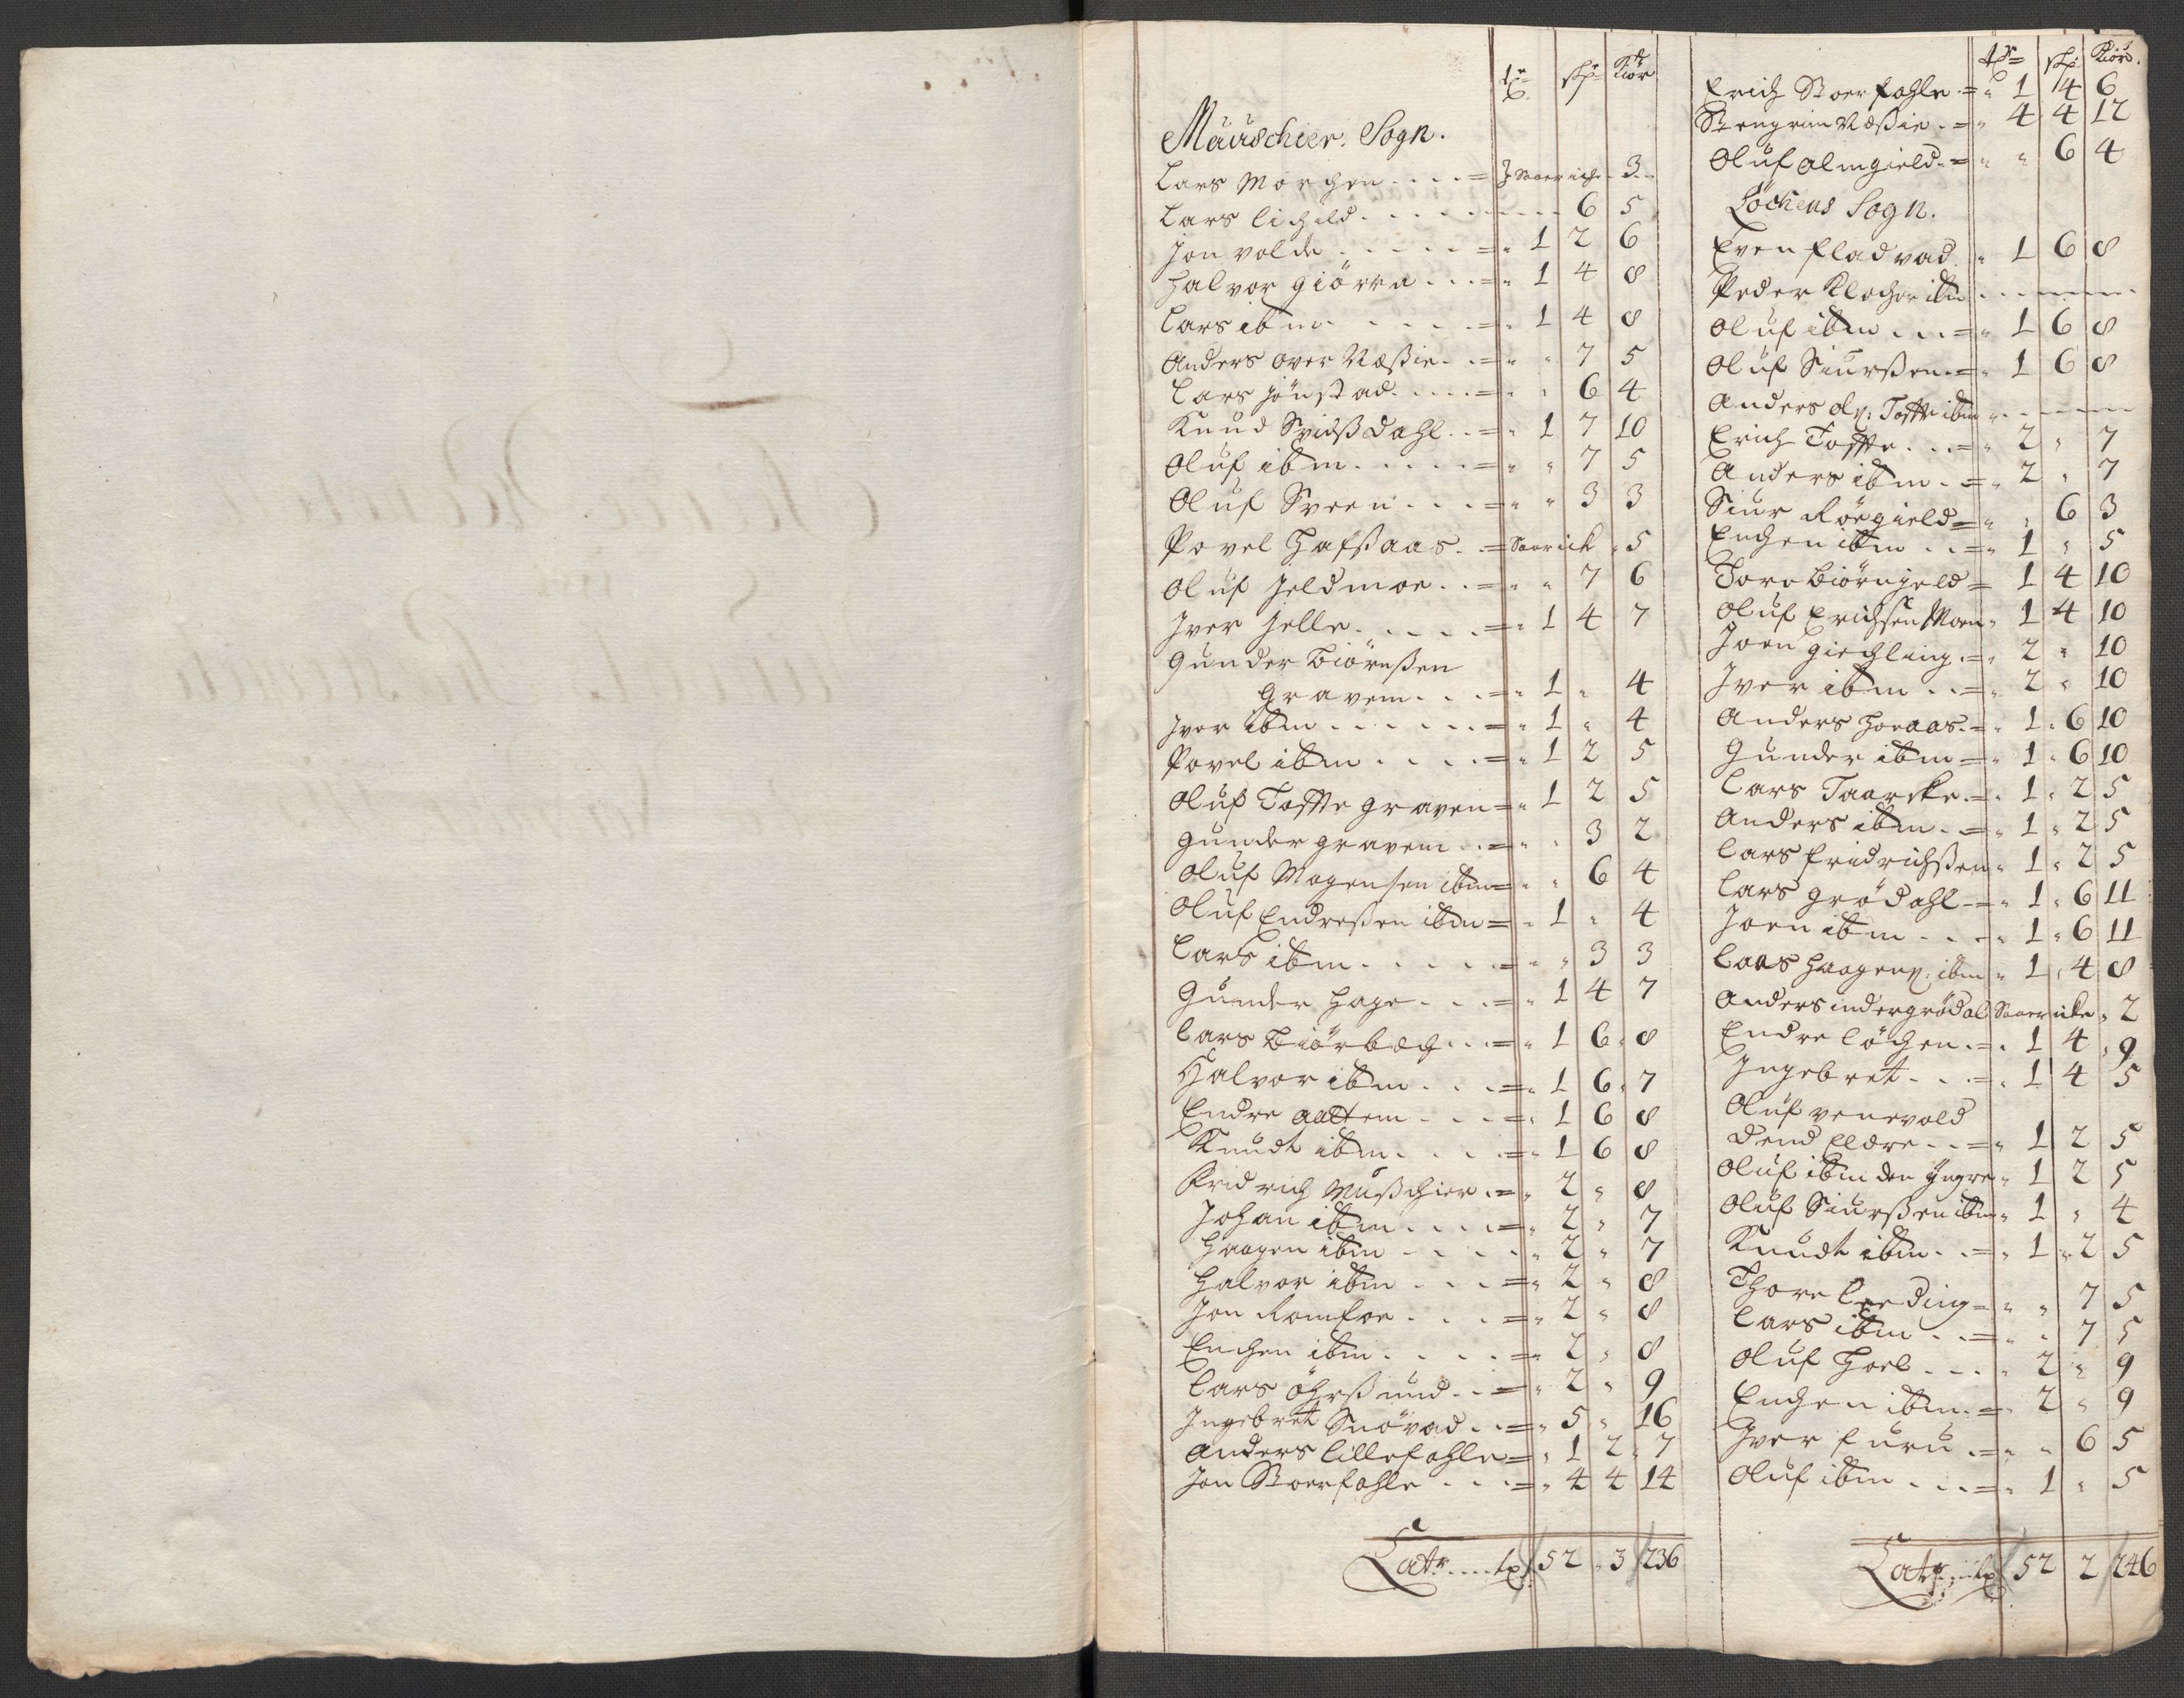 tr. shp. Kiör
Mäuschier. Sogn.
Lars Morchen . . . . = J Saarich 3
Lars lichild . . . . 6 5
Jon volde . . . . = " 1 2 6
Halvor giörra . . . = " 1 4 8
Lars ibm . . . . = " 1 4 8
Anders over Næssie . . = " " 7 5
Lars jönstad . . . . = " " 6 4
Knud Svidssdahl . . = " 1 7 10
Oluf ibm . . . . . = " " 7 5
Oluf Sveen . . . = " " 3 3
Povel Hafssaas . . = Saarich " 5
Oluf Jeldmoe . . = " " 7 6
Iver Jelle . . . . = " 1 4 7
Gunder Biörnssen
Gravem . . . = " 1 " 4
Iver ibm . . . . . = " 1 " 4
Povel ibm . . . . = " 1 2 5
Oluf Tofte graven = " 1 2 5
Gunder gravem . . = " " 3 2
Oluf Mogensen ibm = " " 6 4
Oluf Endressen ibm = " 1 " 4
Lars ibm . . . . = " " 3 3
Gunder Hage . . . = " 1 4 7
Lars Biörbech . . . = " 1 6 8
Halvor ibm . . . = " 1 6 7
Endre aattem . . . = " 1 6 8
Knudt ibm . . . . = " 1 6 8
Fridrich Musschier . = " 2 " 8
Johan ibm . . . . = " 2 " 7
Haagen ibm . . . . " 2 " 7
Halvor ibm . . . = " 2 " 8
Jon Romfoe . . . . = " 2 " 8
Enchen ibm . . . . = " 2 " 8
Lars öhrssund . . = " 2 " 9
Ingebret Snövad . . = " 5 " 16
Anders lillefahle = " 1 2 7
Jon Stoerfahle . . . = " 4 4 14
Latr . . . . tr 52 " 3 236
tr = shp. Kiörd.
Erich Stoerfahle = " 1 14 6
Stengrim Næssie . = " 4 4 12
Oluf almgield . = " " 6 4
Löchens Sogn.
Even flad vad " 1 6 8
Peder Klocher ibm . . . .
Oluf ibm . . . = " 1 6 8
Oluf Siurssen . = " 1 6 8
Anders Ols: Tofte ibm . . . .
Erich Tofte . . . = " 2 " 7
Anders ibm . = " 2 " 7
Siur Röegield = " " 6 3
Enchen ibm . . = " 1 " 5
Tore Biörngeld = 1 4 10
Oluf Erichsen Moen " 1 4 10
Joen giechling . = " 2 " 10
Iver ibm . . = " 2 " 10
Anders Hoeaas . = " 1 " 6 10
Gunder ibm = " 1 " 6 10
Lars Taarske . = " 1 " 2 5
Anders ibm . . = " 1 " 2 5
Lars Fridrichssen " 1 " 2 5
Lars grödahl = " 1 " 6 11
Joen ibm . . . " 1 " 6 11
Lars Haagens: ibm " 1 " 4 8
Anders indergrödal Saarich " 2
Endre löchen . = " 1 4 " 9
Ingebret . . . = " 1 4 5
Oluf venevold
dend Eldre . . = " 1 2 5
Oluf ibm den Yngre " 1 2 5
Oluf Siurssen ibm " 1 " 4
Knudt ibm . . = " 1 " 2 5
Thore Leeding = " " 7 5
Lars ibm . . = " " 7 5
Oluf Hoel . . . . " 2 " 9
Enchen ibm . = " 2 " 9
Iver furu . = " " 6 5
Oluf ibm . . . = " 1 " 5
Latr . . tr 52 2 246